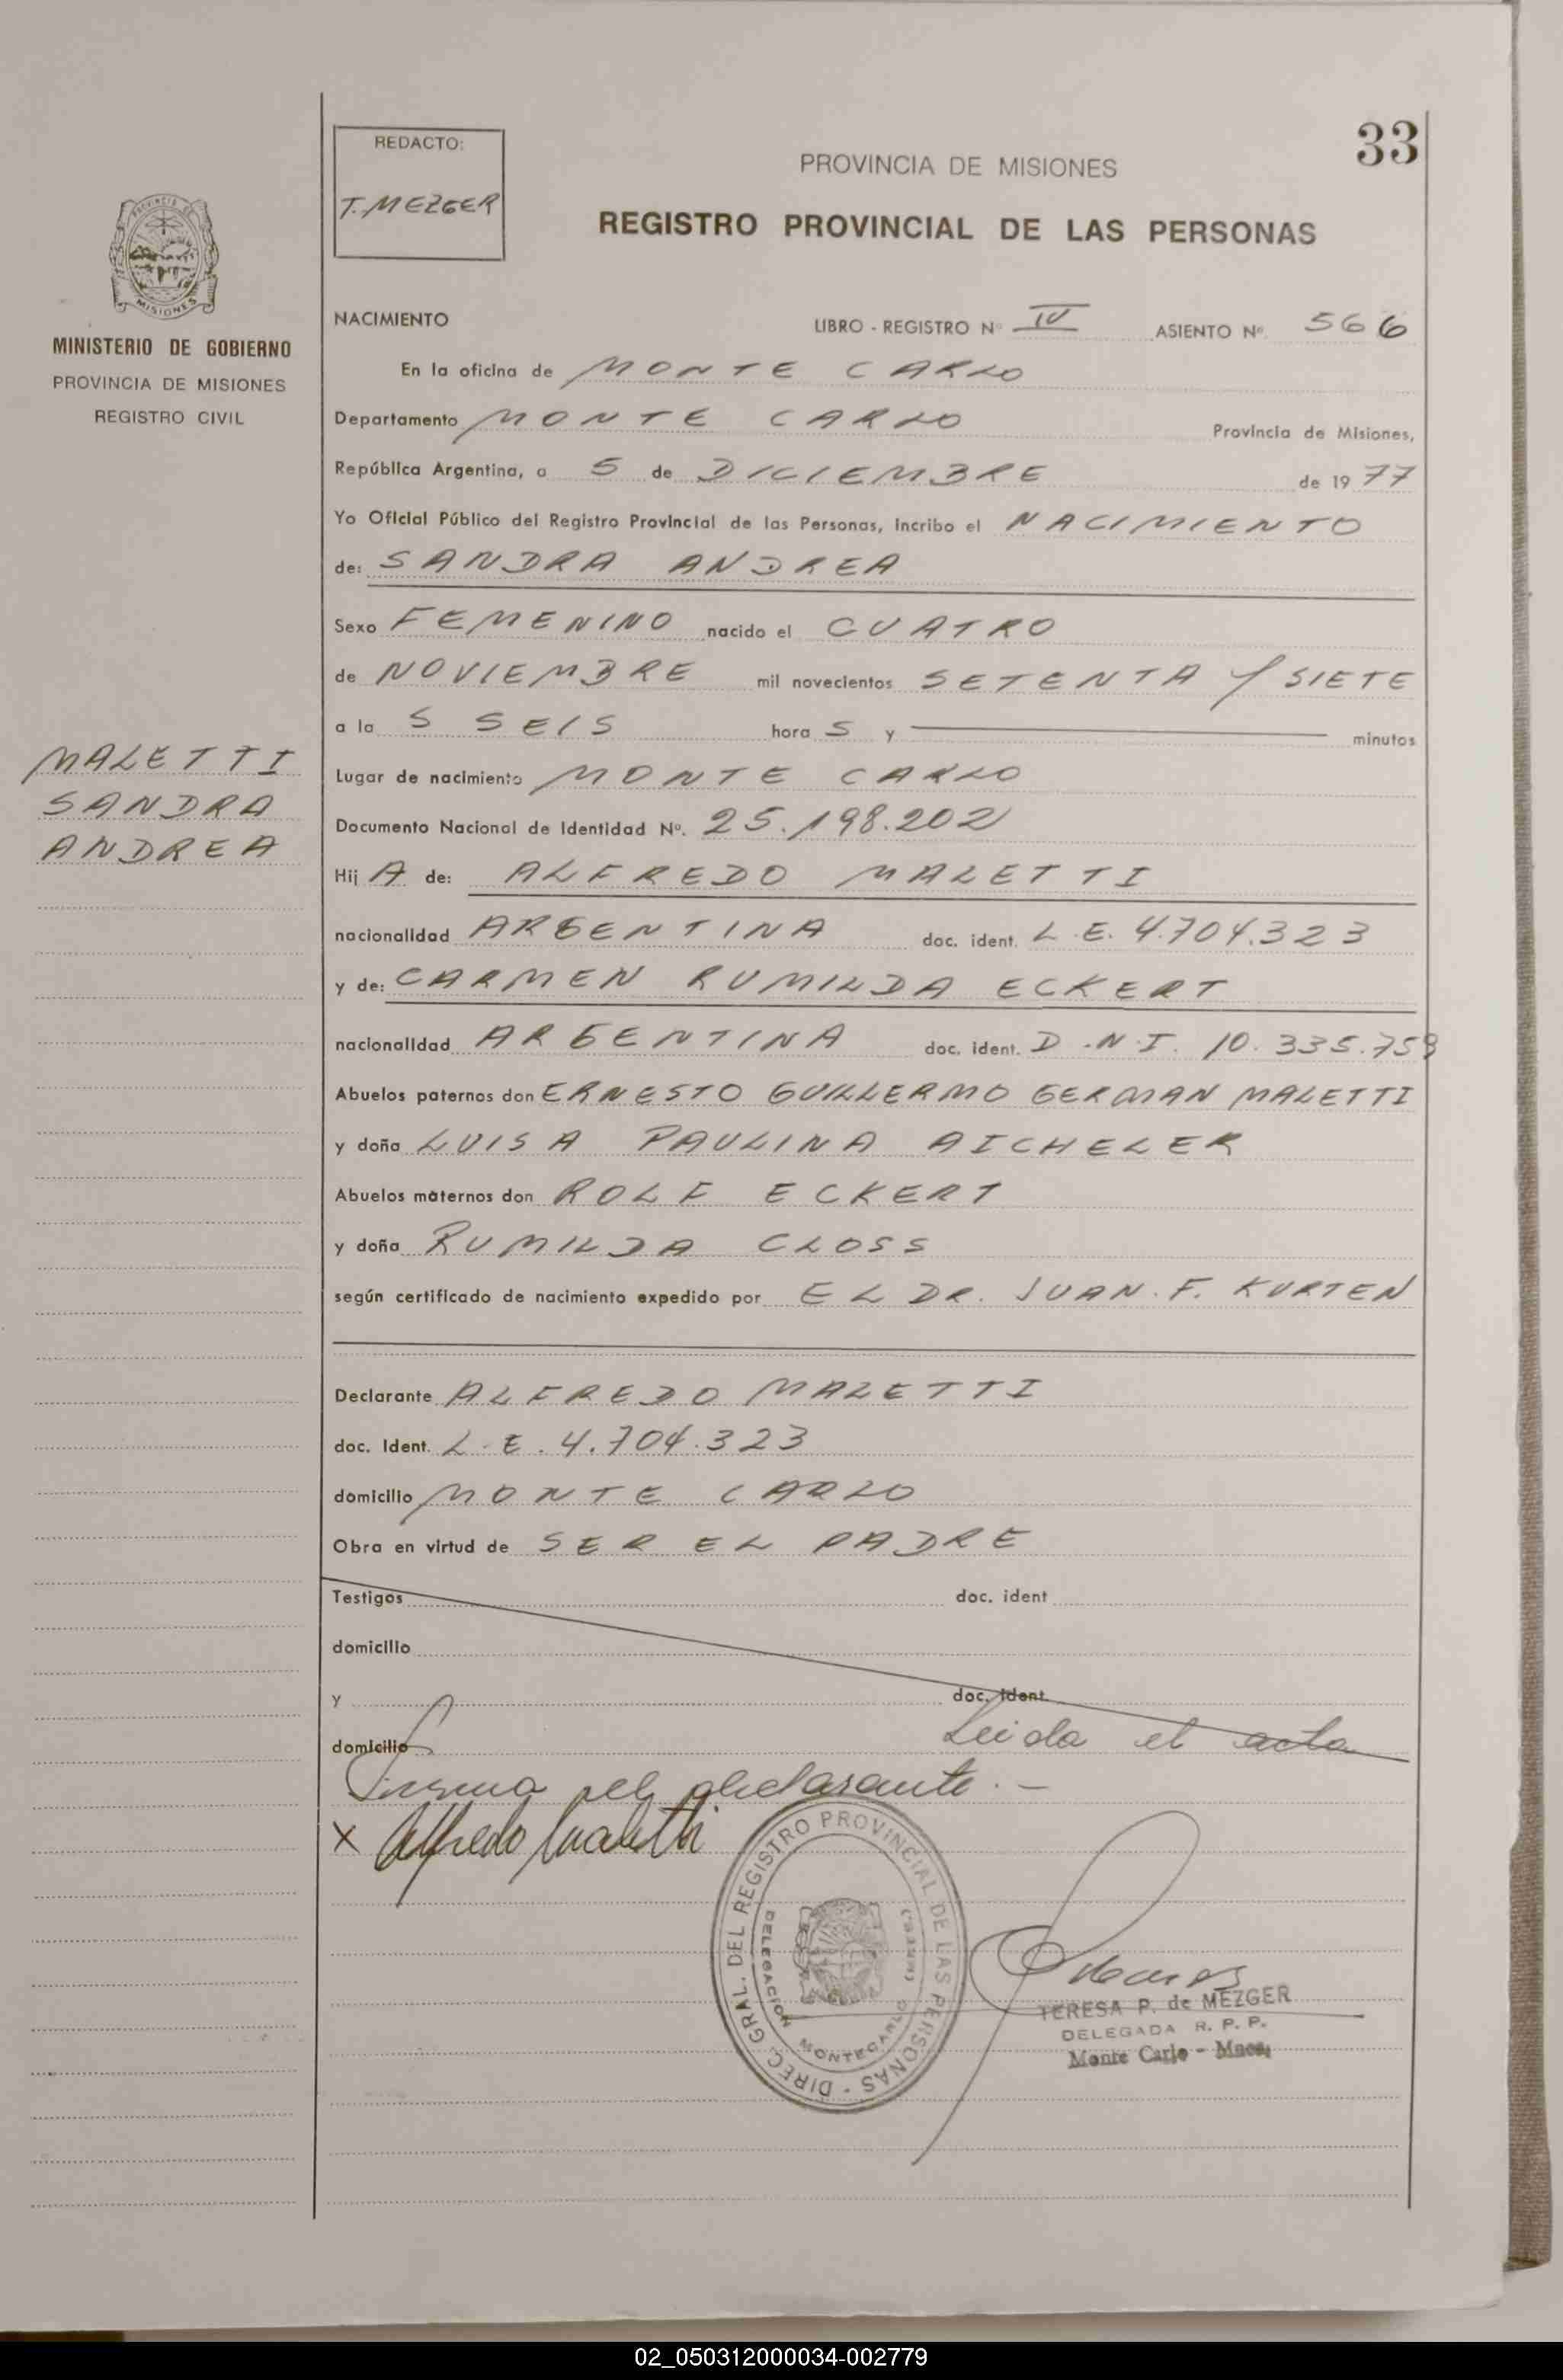 33
REDACTO:
T. MEZGER
PROVINCIA DE MISIONES
REGISTRO PROVINCIAL DE LAS PERSONAS
MISIONES
MINISTERIO DE GOBIERNO
PROVINCIA DE MISIONES
REGISTRO CIVIL
NACIMIENTO LIBRO - REGISTRO Nº IV ASIENTO Nº. 566
En la oficina de MONTE CARLO
Departamento MONTE CARLO Provincia de Misiones,
República Argentina, a 5 de DICIEMBRE de 1977
Yo Oficial Público del Registro Provincial de las Personas, incribo el NACIMIENTO
de: SANDRA ANDREA
Sexo FEMENINO nacido el CUATRO
de NOVIEMBRE mil novecientos SETENTA Y SIETE
a la S SEIS hora S y minutos
MALETTI
SANDRA
ANDREA
Lugar de nacimiento MONTE CARLO
Documento Nacional de Identidad Nº. 25.198.202
Hij A de: ALFREDO MALETTI
nacionalidad ARGENTINA doc. ident. L.E. 4.704.323
y de: CARMEN RUMILDA ECKERT
nacionalidad ARGENTINA doc. ident. D.N.I. 10.335.759
Abuelos paternos don ERNESTO GUILLERMO GERMAN MALETTI
y doña LUISA PAULINA AICHELER
Abuelos maternos don ROLF ECKERT
y doña RUMILDA CLOSS
según certificado de nacimiento expedido por EL DR. JUAN. F. KURTEN
Declarante ALFREDO MALETTI
doc. Ident. L.E. 4.704.323
domicilio MONTE CARLO
Obra en virtud de SER EL PADRE
Testigos doc. ident
domicilio
y doc. ident.
domicilio Leida el acta
Firma el declarante.-
x Alfredo Maletti
DIREC. GRAL. DEL REGISTRO PROVINCIAL DE LAS PERSONAS -
DELEGACION MONTECARLO
TERESA P. de MEZGER
DELEGADA R. P. P.
Monte Carlo - Mnes.
02_050312000034-002779